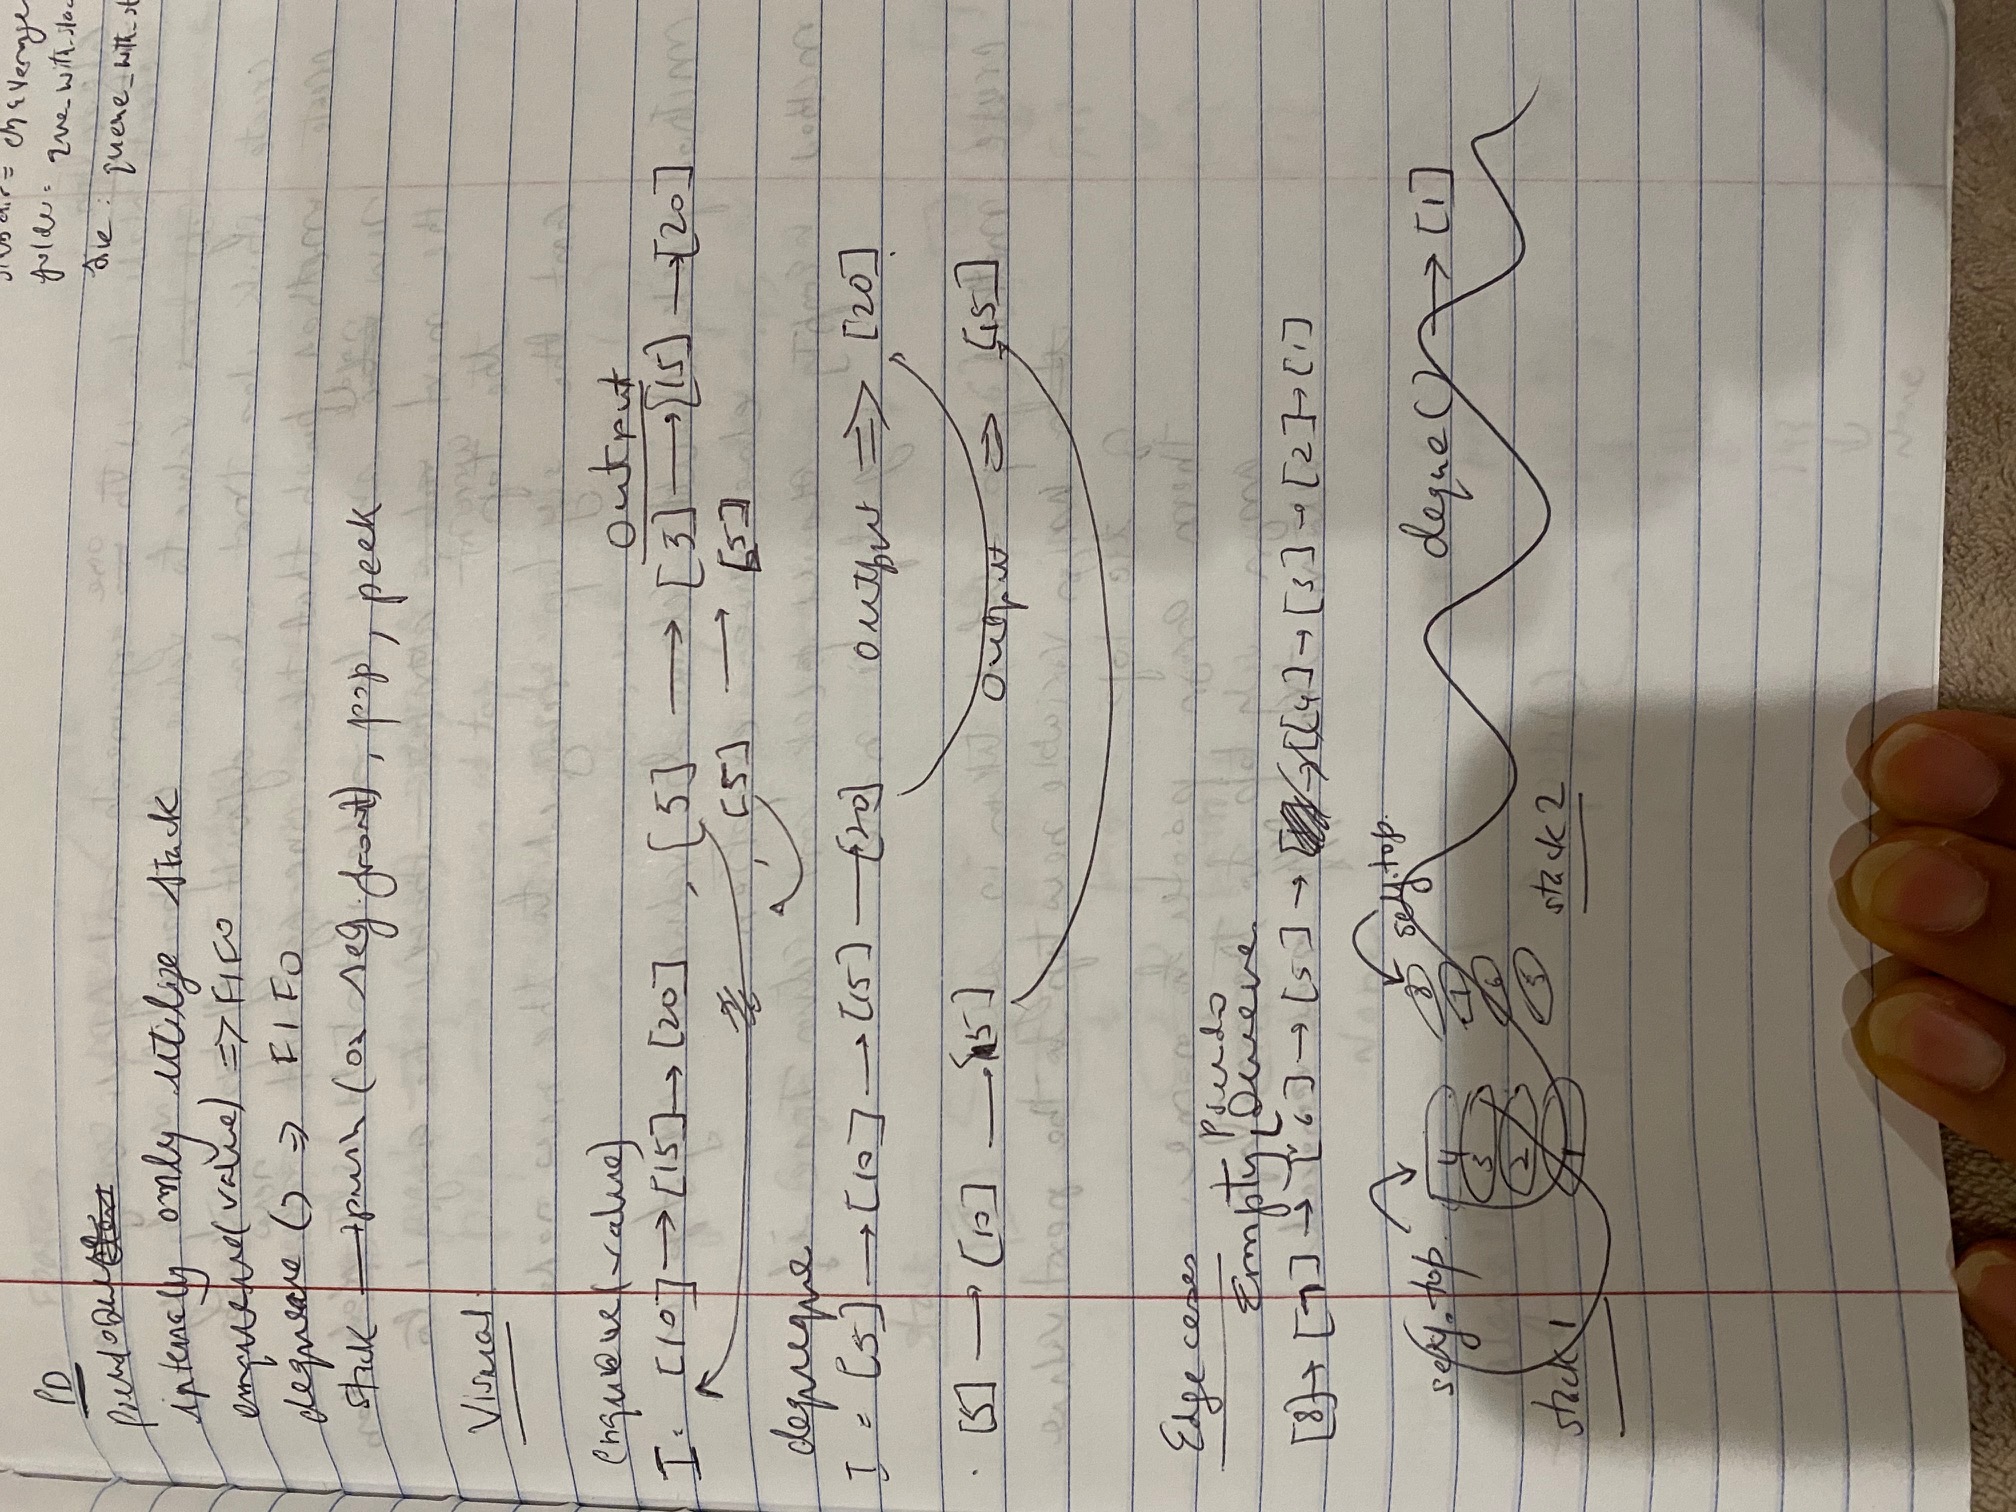 subdir = challenge
folder: que_with_stac
file: queue_with_st
PD
pseudoQue
internaly only utilize stack
enqueue(value) => FIFO
dequeue () => FIFO
stack → push (or seg.front), pop, peek
Visual
enqueue(value)
Output
I: [10] → [15] → [20] , [5] → [3] → [15] → [20]
, [5] → [5]
depueque
I = [5] → [10] → [15] — [20] Output => [20]
[5] → [10] → [15] Output => [15]
Edge cases
Pseudo
Empty, Queue.
[8] → [7] → [6] → [5] → → [[4] → [3] → [2] → [1]
self.top. 4 3 2 1
8 7 6 5 self.top.
deque() → [1]
stack 1
stack 2